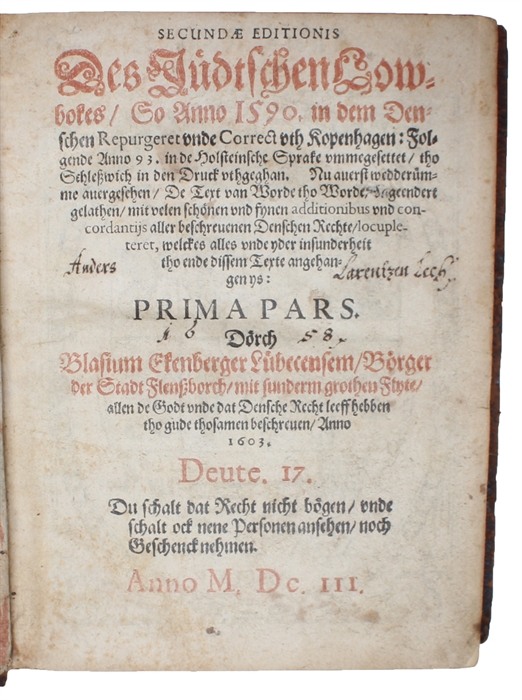 SECUNDÆ EDITIONIS
Des Jüdtschen Low-
bokes / So Anno 1590. in dem Den-
schen Repurgeret vnde Correct vth Kopenhagen: Fol-
gende Anno 93. in de Holsteinsche Sprake vmmegesettet / tho
Schleßwich in den Druck vthgeghan. Nu auerst wedderüm-
me auergesehen / De Text van Worde tho Worde,
gelathen / mit velen schönen vnd fynen additionibus vnd con-
cordantijs aller beschreuenen Denschen Rechte / locuple-
teret, welckes alles vnde yder insunderheit
tho ende dissem Texte angehan-
gen ys:
Anders Larentzen
PRIMA PARS.
16 58.
Dörch
Blasium Ekenberger Lübecensem / Börger
der Stadt Flenßborch / mit sunderm grothen Flyte /
allen de Godt vnde dat Densche Recht leeff hebben
tho gude thosamen beschreuen / Anno
1603.
Deute. 17.
Du schalt dat Recht nicht bögen / vnde
schalt ock nene Personen ansehen / noch
Geschenck nehmen.
Anno M. Dc. III.